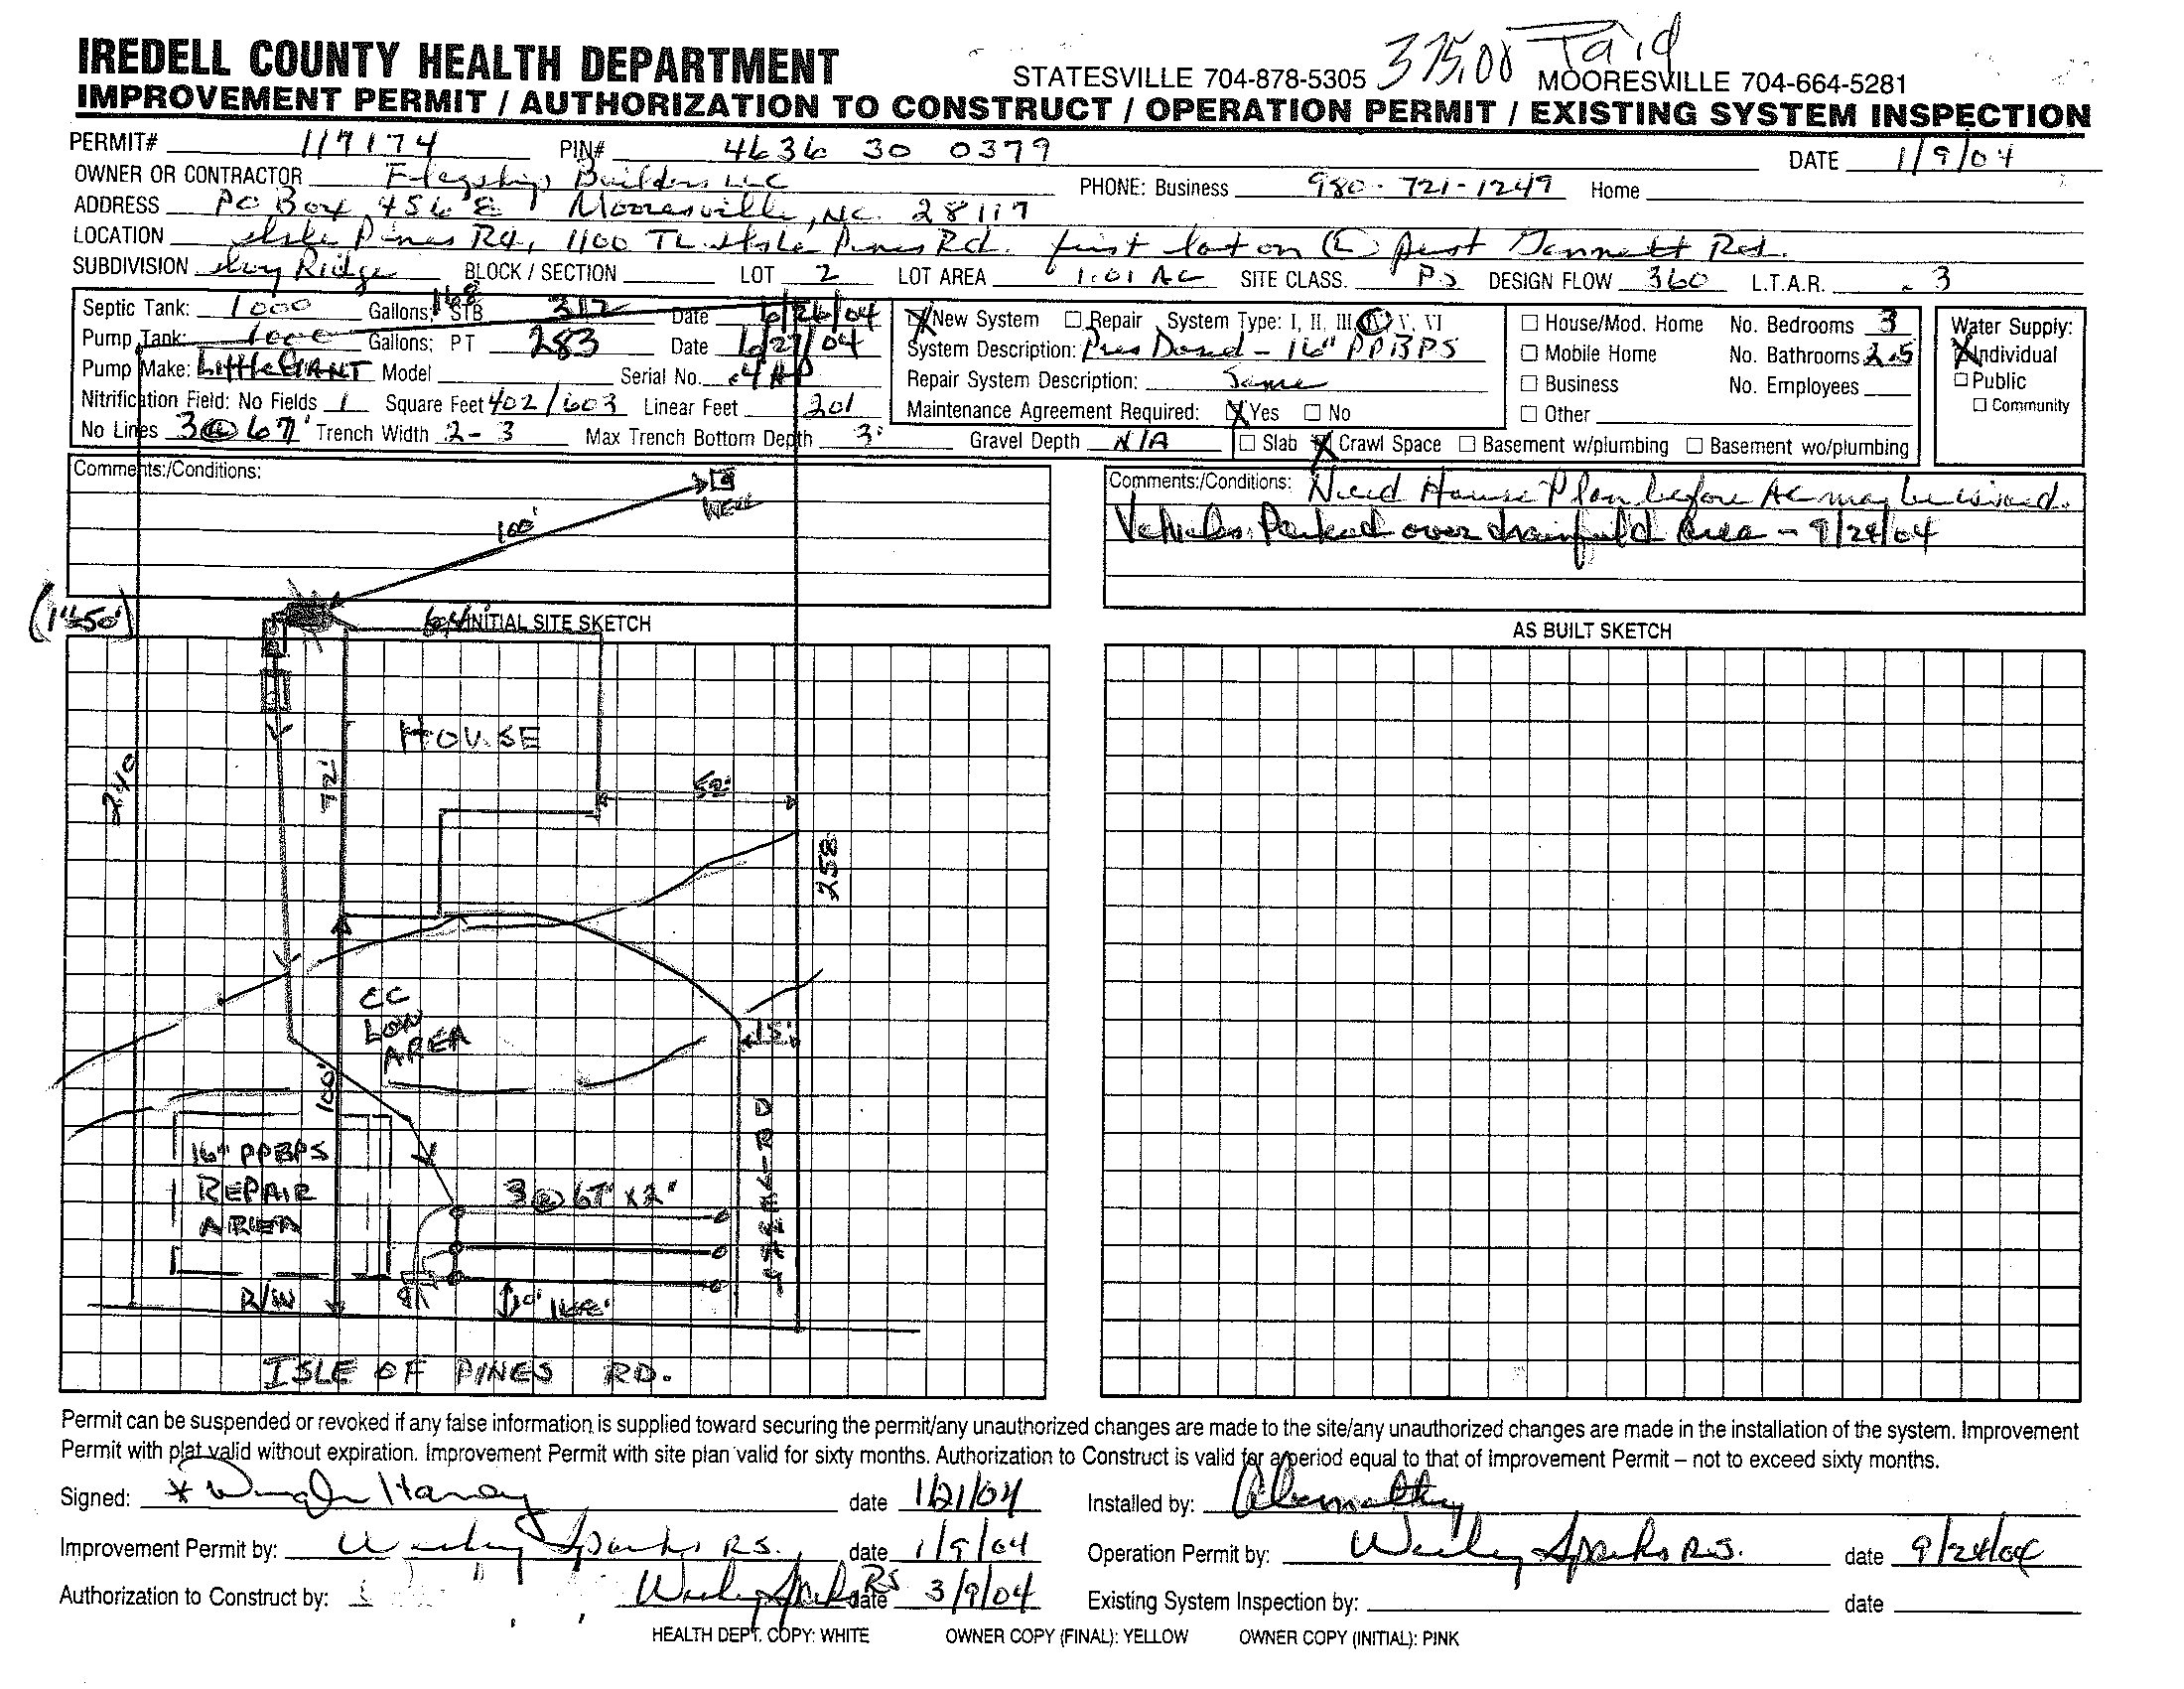 375.00 Paid
IREDELL COUNTY HEALTH DEPARTMENT STATESVILLE 704-878-5305 MOORESVILLE 704-664-5281
IMPROVEMENT PERMIT / AUTHORIZATION TO CONSTRUCT / OPERATION PERMIT / EXISTING SYSTEM INSPECTION
PERMIT# 117174 PIN# 4636 30 0379 DATE 1/9/04
OWNER OR CONTRACTOR Flagship Builders LLC PHONE: Business 980-721-1249 Home
ADDRESS PO Box 4568 Mooresville, NC. 28117
LOCATION Isle Pines Rd, 1100 TL Isle Pines Rd. first lot on (L) past Gannett Rd.
SUBDIVISION Ivy Ridge BLOCK / SECTION LOT 2 LOT AREA 1.01 AC SITE CLASS. PS DESIGN FLOW 360 L.T.A.R. .3
Septic Tank: 1000 Gallons; STB 312 Date
Pump Tank: 1000 Gallons; PT 283 Date
Pump Make: Little GIANT Model Serial No. .4 HP
Nitrification Field: No Fields 1 Square Feet 402/603 Linear Feet 201
No Lines 3@67' Trench Width 2-3 Max Trench Bottom Depth 3' Gravel Depth N/A
New System Repair System Type: I, II, III, IV, V, VI
System Description: Pres Dosed - 16" PPBPS
Repair System Description: Same
Maintenance Agreement Required: Yes No
House/Mod. Home No. Bedrooms 3
Mobile Home No. Bathrooms 2.5
Business No. Employees
Other
Slab Crawl Space Basement w/plumbing Basement wo/plumbing
Water Supply:
Individual
Public
Community
Comments:/Conditions:
WELL
100'
Comments:/Conditions: Need House Plan before AC may be issued.
Vehicles Parked over drainfield Area - 9/24/04
(1"=50')
INITIAL SITE SKETCH
AS BUILT SKETCH
HOUSE
240
72'
52'
258
LOW
AREA
15'
100'
16" PPBPS
REPAIR
AREA
3@67'x2'
R/W
10'
ISLE OF PINES RD.
Permit can be suspended or revoked if any false information is supplied toward securing the permit/any unauthorized changes are made to the site/any unauthorized changes are made in the installation of the system. Improvement
Permit with plat valid without expiration. Improvement Permit with site plan valid for sixty months. Authorization to Construct is valid for a period equal to that of Improvement Permit – not to exceed sixty months.
Signed: date 1/21/04 Installed by: Abernathy
Improvement Permit by: Wesley Sparks R.S. date 1/9/04 Operation Permit by: Wesley Sparks R.S. date 9/24/04
Authorization to Construct by: Wesley Sparks RS date 3/9/04 Existing System Inspection by: date
HEALTH DEPT. COPY: WHITE OWNER COPY (FINAL): YELLOW OWNER COPY (INITIAL): PINK